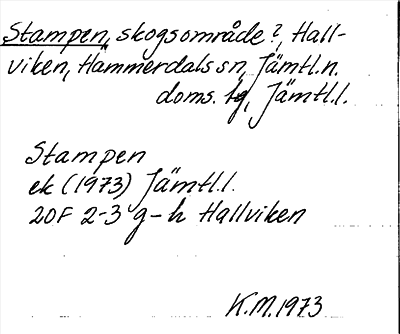 Stampen, skogsområde?, Hall-
viken, Hammerdals sn, Jämtl.n.
doms. tg, Jämtl.l.
Stampen
ek (1973) Jämtl.l.
20F 2-3 g-h Hallviken
K.M. 1973